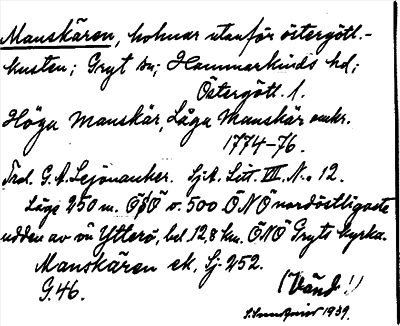 Manskären, holmar utanför östergötl.-
kusten; Gryt sn; Hammarkinds hd;
Östergötl. l.
Höga Manskär, Låga Manskär omkr.
1774-76.
Trol. G. A. Lejonancker. Sj.A. Litt. VII. N:o 12.
Läge 250 m. ÖSÖ o. 500 ÖNÖ nordöstligaste
udden av ön Ytterö, bel. 12,8 km. ÖNÖ Gryts kyrka.
Manskären ek, Sj. 252.
G. 46.
(Vänd!)
1939.